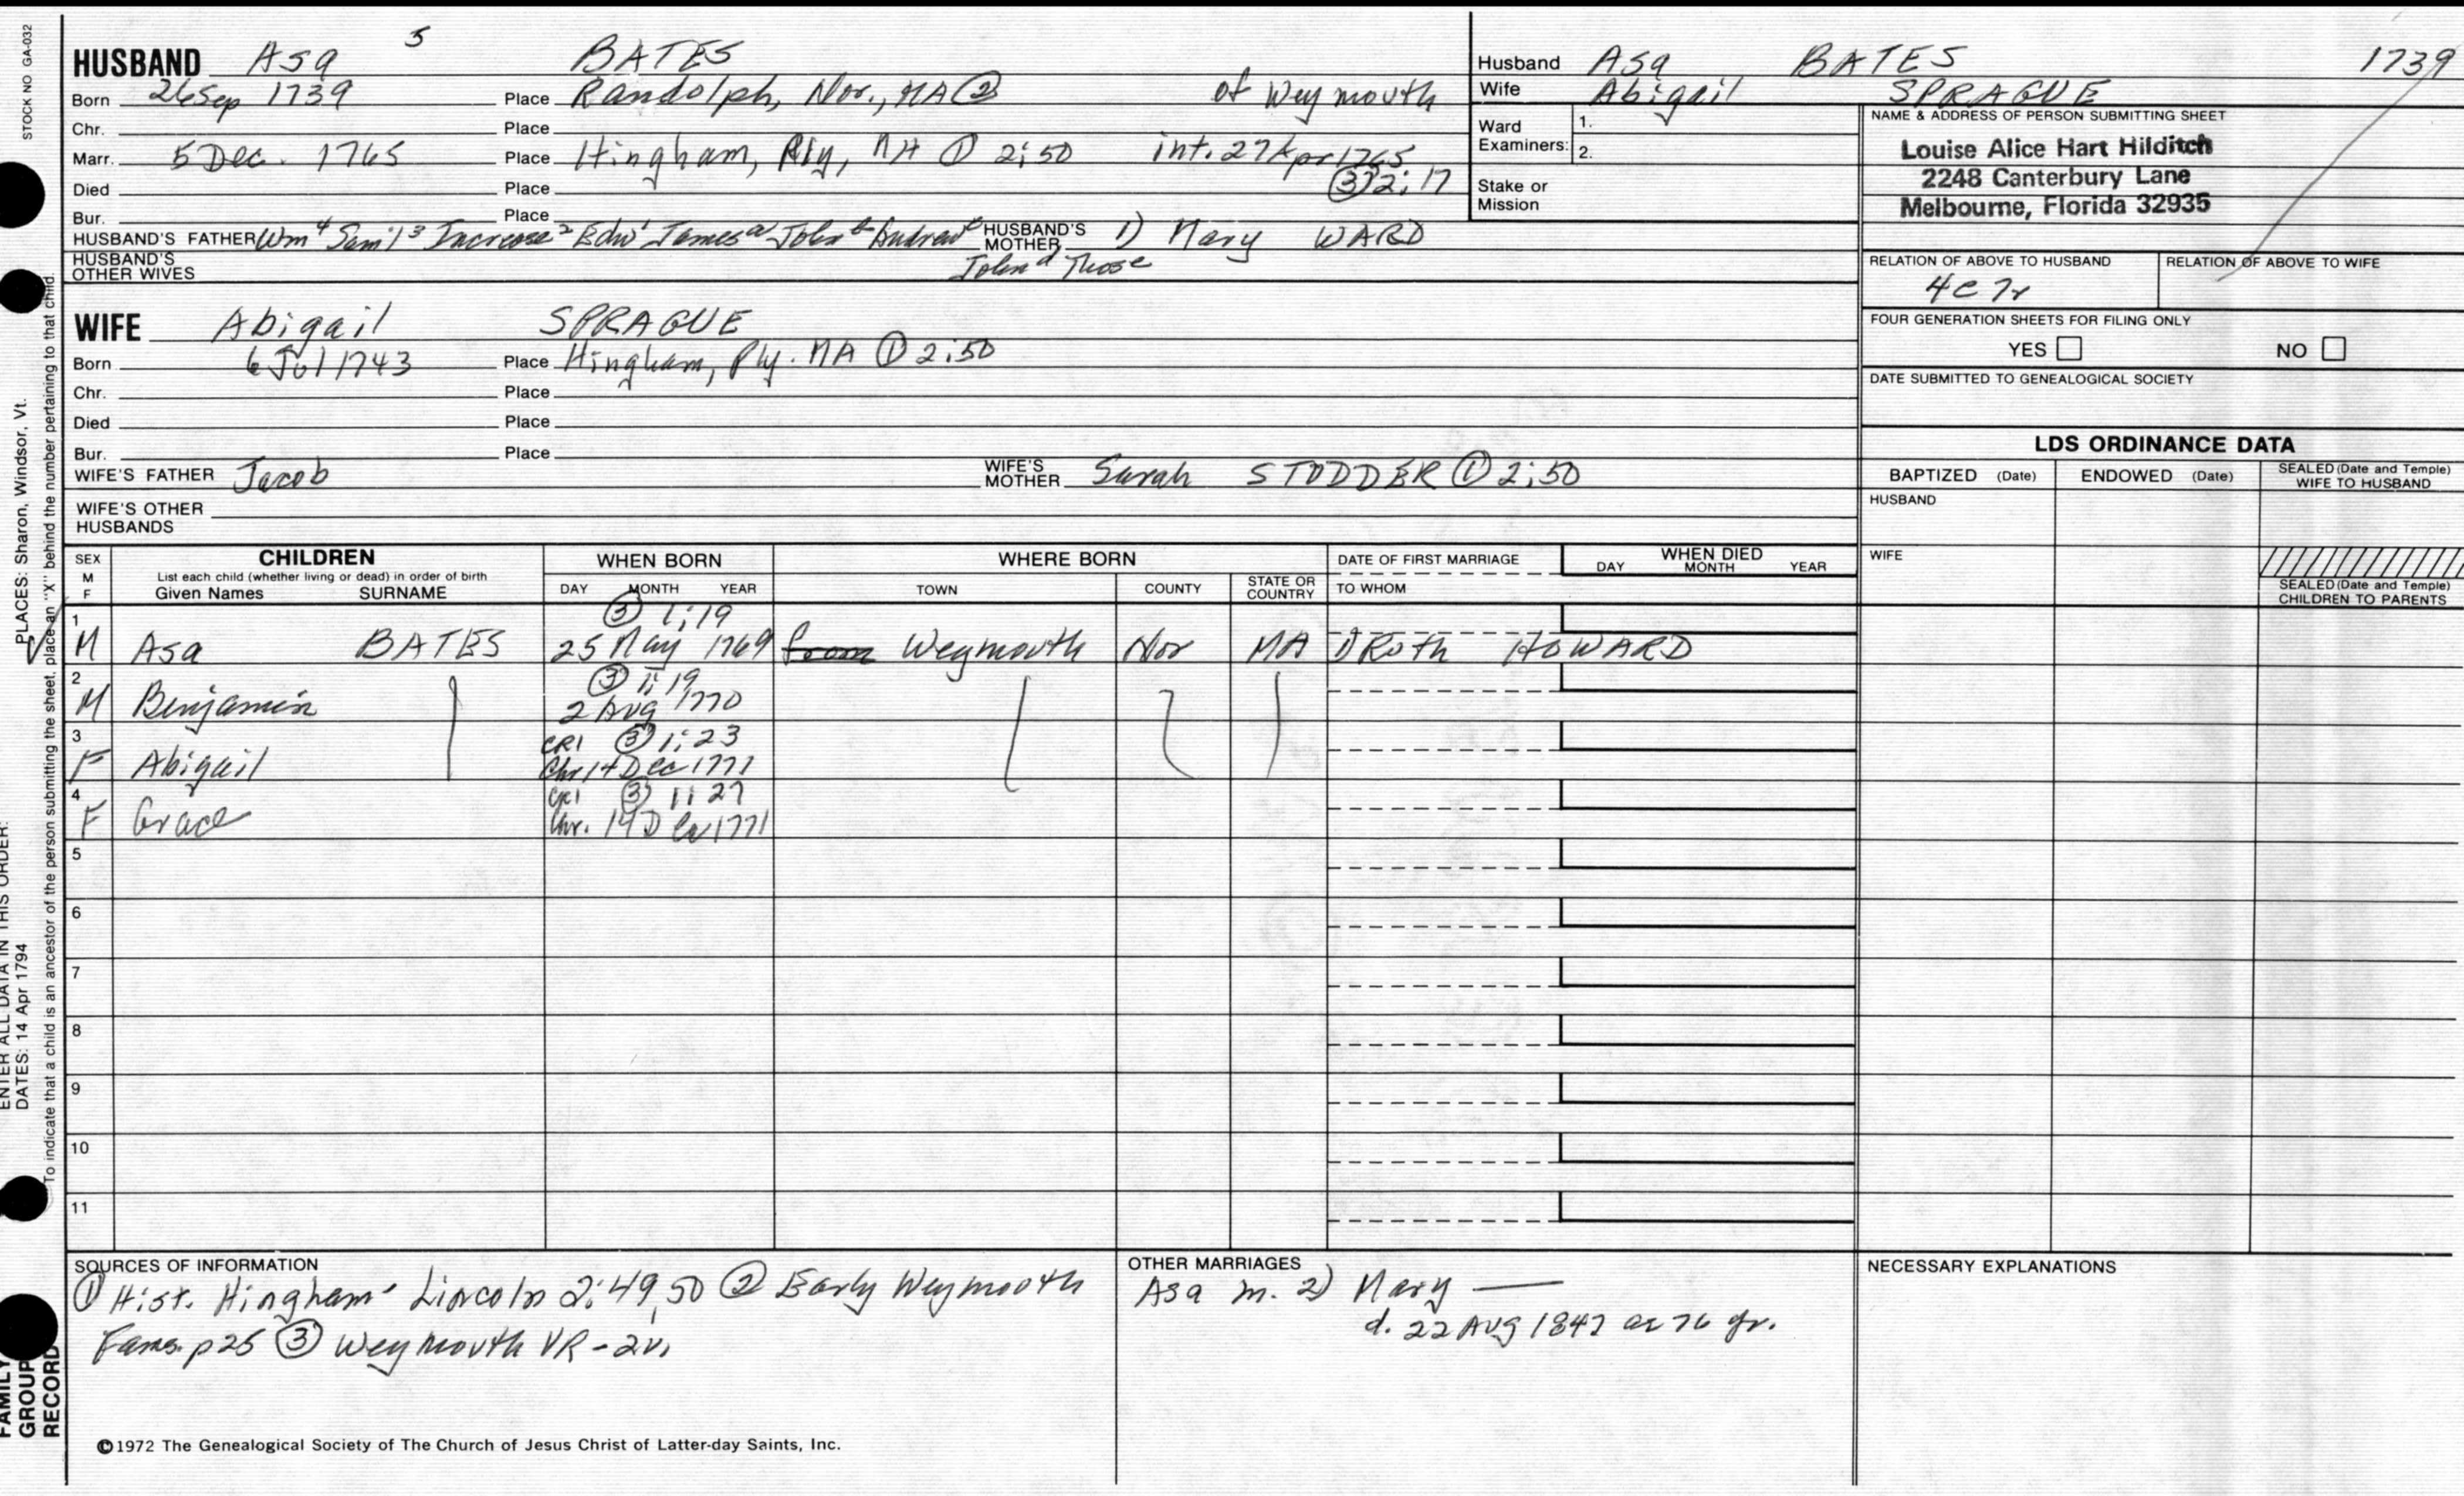 STOCK NO GA-032
HUSBAND Asa 5 BATES
Born 26 Sep 1739 Place Randolph, Nor., MA ② of Weymouth
Chr. Place
Marr. 5 Dec. 1765 Place Hingham, Ply, MA ① 2:50 int. 27 Apr 1765
Died Place ③ 2:17
Bur. Place
HUSBAND'S FATHER Wm⁴ Sam'l³ Increase² Edw¹ James ᵃ John ᵇ Andrew ᶜ HUSBAND'S MOTHER 1) Mary WARD
HUSBAND'S OTHER WIVES John ᵈ Thos ᵉ
Husband Asa BATES 1739
Wife Abigail SPRAGUE
Ward Examiners: 1.
2.
Stake or Mission
NAME & ADDRESS OF PERSON SUBMITTING SHEET
Louise Alice Hart Hilditch
2248 Canterbury Lane
Melbourne, Florida 32935
RELATION OF ABOVE TO HUSBAND RELATION OF ABOVE TO WIFE
4c 7r
FOUR GENERATION SHEETS FOR FILING ONLY
YES NO
DATE SUBMITTED TO GENEALOGICAL SOCIETY
WIFE Abigail SPRAGUE
Born 6 Jul 1743 Place Hingham, Ply. MA ① 2:50
Chr. Place
Died Place
Bur. Place
WIFE'S FATHER Jacob WIFE'S MOTHER Sarah STODDER ① 2:50
WIFE'S OTHER HUSBANDS
LDS ORDINANCE DATA
BAPTIZED (Date) ENDOWED (Date) SEALED (Date and Temple) WIFE TO HUSBAND
HUSBAND
WIFE
SEALED (Date and Temple) CHILDREN TO PARENTS
SEX M F CHILDREN WHEN BORN WHERE BORN DATE OF FIRST MARRIAGE WHEN DIED
List each child (whether living or dead) in order of birth DAY MONTH YEAR
Given Names SURNAME DAY MONTH YEAR TOWN COUNTY STATE OR COUNTRY TO WHOM
1 ③ 1:19
M Asa BATES 25 May 1769 from Weymouth Nor MA Ruth HOWARD
2 ③ 1:19
M Benjamin 2 Aug 1770
3 CR1 ③ 1:23
F Abigail Chr 14 Dec 1771
4 CR1 ③ 1:27
F Grace Chr. 14 Dec 1771
5
6
7
8
9
10
11
SOURCES OF INFORMATION
① Hist. Hingham - Lincoln 2:49,50 ② Early Weymouth
Fams. p25 ③ Weymouth VR - 2v.
OTHER MARRIAGES
Asa m. 2) Mary —
d. 22 Aug 1847 ae 76 yr.
NECESSARY EXPLANATIONS
©1972 The Genealogical Society of The Church of Jesus Christ of Latter-day Saints, Inc.
ENTER ALL DATA IN THIS ORDER:
DATES: 14 Apr 1794
PLACES: Sharon, Windsor, Vt.
To indicate that a child is an ancestor of the person submitting the sheet, place an "X" behind the number pertaining to that child.
FAMILY GROUP RECORD